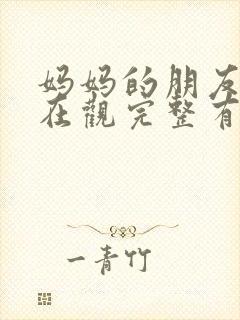 妈妈的朋友
在觀完整有
一青竹